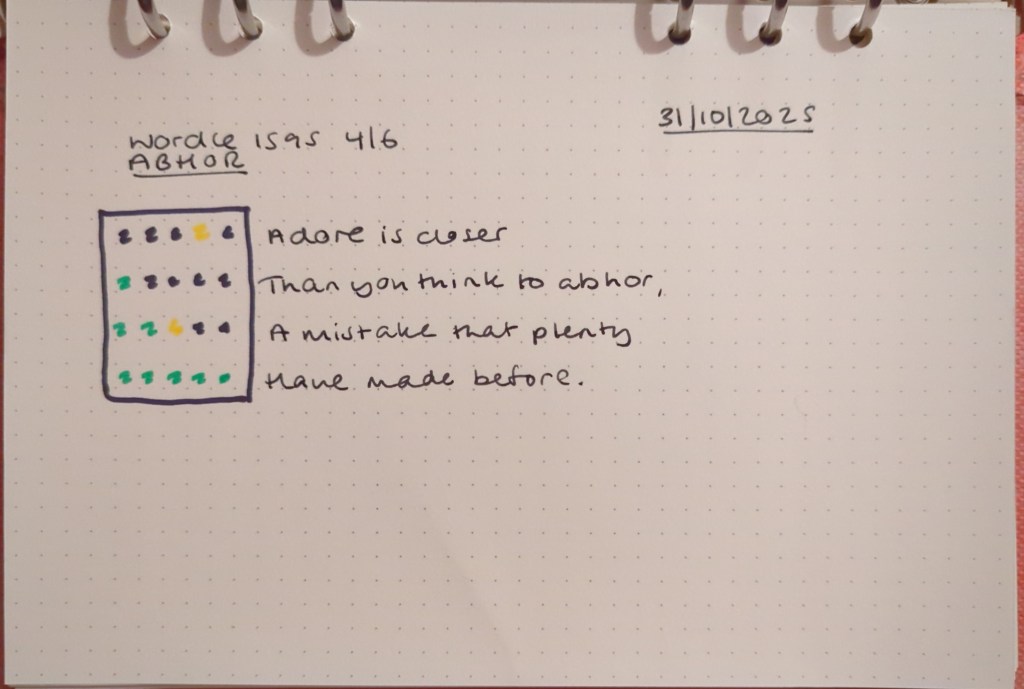 31/10/2025
Wordle 1595 4/6
ABHOR
Adore is closer
Than you think to abhor,
A mistake that plenty
Have made before.